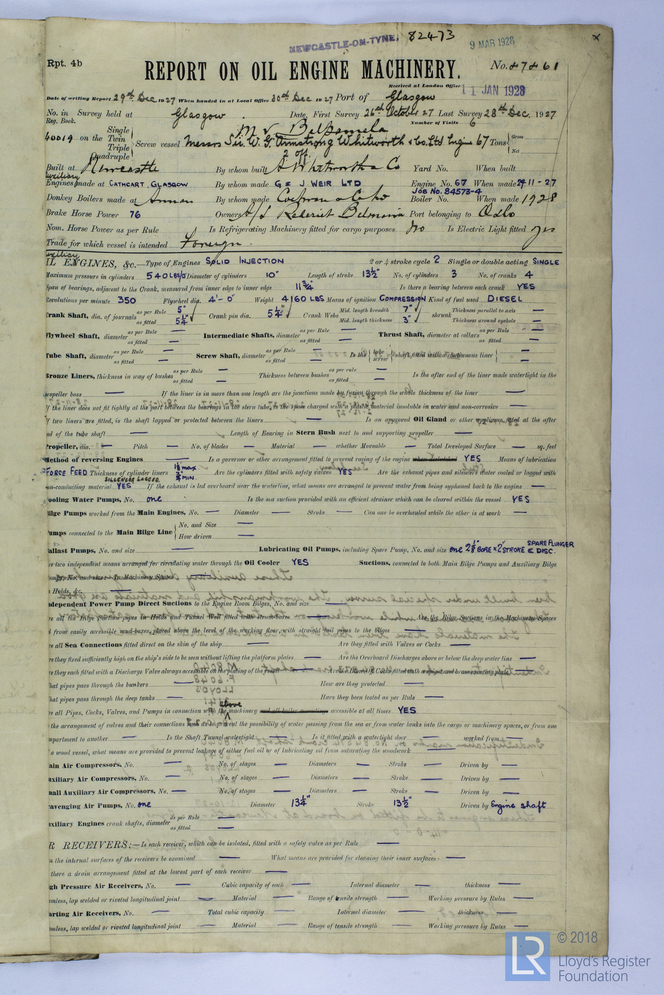 NEWCASTLE-ON-TYNE. 82473
9 MAR 1928
Rpt. 4b
REPORT ON OIL ENGINE MACHINERY. No. 47461
Received at London Office 11 JAN 1928
Date of writing Report 29th Dec 1927 When handed in at Local Office 30th Dec 1927 Port of Glasgow
No. in Survey held at Glasgow Date, First Survey 26th October 1927 Last Survey 28th Dec. 1927
Reg. Book. Number of Visits 6
on the Single Twin Triple Quadruple Screw vessel M.V. Belpamela Tons Gross Net
Messrs Sir W. G. Armstrong Whitworth & Co. Ltd Engine 67
2 off
Built at Newcastle By whom built A. Whitworth & Co Yard No. When built
Auxiliary Engines made at CATHCART GLASGOW By whom made G & J WEIR LTD Engine No. 67 When made 29-11-27
JOB NO. 84573-4
Donkey Boilers made at Annan By whom made Cochran & Co Boiler No. When made 1928
Brake Horse Power 76 Owners Port belonging to Oslo
Nom. Horse Power as per Rule — Is Refrigerating Machinery fitted for cargo purposes No Is Electric Light fitted yes
Trade for which vessel is intended Foreign
Auxiliary
IL ENGINES, &c.—Type of Engines SOLID INJECTION 2 or 4 stroke cycle 2 Single or double acting SINGLE
Maximum pressure in cylinders 540 LBS/□" Diameter of cylinders 10" Length of stroke 13½" No. of cylinders 3 No. of cranks 4
Span of bearings, adjacent to the Crank, measured from inner edge to inner edge 11¾" Is there a bearing between each crank YES
Revolutions per minute 350 Flywheel dia. 4'-0" Weight 4160 LBS Means of ignition COMPRESSION Kind of fuel used DIESEL
Crank Shaft, dia. of journals as per Rule 5" as fitted 5¼" Crank pin dia. 5¼" Crank Webs Mid. length breadth 7" Mid. length thickness 3" shrunk Thickness parallel to axis — Thickness around eyehole —
Flywheel Shaft, diameter as per Rule — as fitted — Intermediate Shafts, diameter as per Rule — as fitted — Thrust Shaft, diameter at collars as per Rule — as fitted —
Tube Shaft, diameter as per Rule — as fitted — Screw Shaft, diameter as per Rule — as fitted — Is the tube screw shaft fitted with a continuous liner —
Bronze Liners, thickness in way of bushes as per Rule — as fitted — Thickness between bushes as per Rule — as fitted — Is the after end of the liner made watertight in the
propeller boss — If the liner is in more than one length are the junctions made by fusion through the whole thickness of the liner —
If the liner does not fit tightly at the part between the bearings in the stern tube, is the space charged with a plastic material insoluble in water and non-corrosive —
If two liners are fitted, is the shaft lapped or protected between the liners — Is an approved Oil Gland or other appliance fitted at the after
end of the tube shaft — Length of Bearing in Stern Bush next to and supporting propeller —
Propeller, dia. — Pitch — No. of blades — Material — whether Moveable — Total Developed Surface — sq. feet
Method of reversing Engines — Is a governor or other arrangement fitted to prevent racing of the engine YES Means of lubrication
FORCE FEED Thickness of cylinder liners Are the cylinders fitted with safety valves YES Are the exhaust pipes and silencers water cooled or lagged with
non-conducting material YES SILENCERS LAGGED If the exhaust is led overboard near the waterline, what means are arranged to prevent water from being syphoned back to the engine —
Cooling Water Pumps, No. one Is the sea suction provided with an efficient strainer which can be cleared within the vessel YES
Bilge Pumps worked from the Main Engines, No. — Diameter — Stroke — Can one be overhauled while the other is at work —
Pumps connected to the Main Bilge Line No. and Size — How driven —
Ballast Pumps, No. and size — Lubricating Oil Pumps, including Spare Pump, No. and size one 2⅛" BORE × 2" STROKE SPARE PLUNGER & DISC.
Are two independent means arranged for circulating water through the Oil Cooler YES Suctions, connected to both Main Bilge Pumps and Auxiliary Bilge
Independent Power Pump Direct Suctions to the Engine Room Bilges, No. and size —
Are all Sea Connections fitted direct on the skin of the ship — Are they fitted with Valves or Cocks —
Are they fixed sufficiently high on the ship's side to be seen without lifting the platform plates — Are the Overboard Discharges above or below the deep water line —
What pipes pass through the bunkers — How are they protected —
What pipes pass through the deep tanks — Have they been tested as per Rule —
Are all Pipes, Cocks, Valves, and Pumps in connection with the above machinery accessible at all times YES
Is the Shaft Tunnel watertight — Is it fitted with a watertight door — worked from —
If a wood vessel, what means are provided to prevent leakage of either fuel oil or lubricating oil from saturating the woodwork —
Main Air Compressors, No. — No. of stages — Diameters — Stroke — Driven by —
Auxiliary Air Compressors, No. — No. of stages — Diameters — Stroke — Driven by —
Small Auxiliary Air Compressors, No. — No. of stages — Diameters — Stroke — Driven by —
Scavenging Air Pumps, No. one Diameter 13¼" Stroke 13½" Driven by Engine shaft
Auxiliary Engines crank shafts, diameter as per Rule — as fitted —
R RECEIVERS:—Is each receiver, which can be isolated, fitted with a safety valve as per Rule —
Can the internal surfaces of the receivers be examined — What means are provided for cleaning their inner surfaces —
Is there a drain arrangement fitted at the lowest part of each receiver —
High Pressure Air Receivers, No. — Cubic capacity of each — Internal diameter — thickness —
Seamless, lap welded or riveted longitudinal joint — Material — Range of tensile strength — Working pressure by Rules —
Starting Air Receivers, No. — Total cubic capacity — Internal diameter — thickness —
Seamless, lap welded or riveted longitudinal joint — Material — Range of tensile strength — Working pressure by Rules —
LR © 2018
Lloyd's Register
Foundation